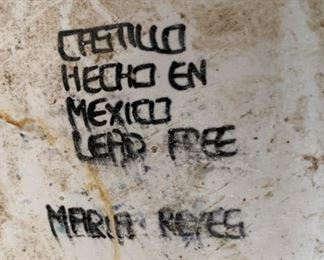 CASTILLO
HECHO EN
MEXICO
LEAD FREE
MARIA REYES